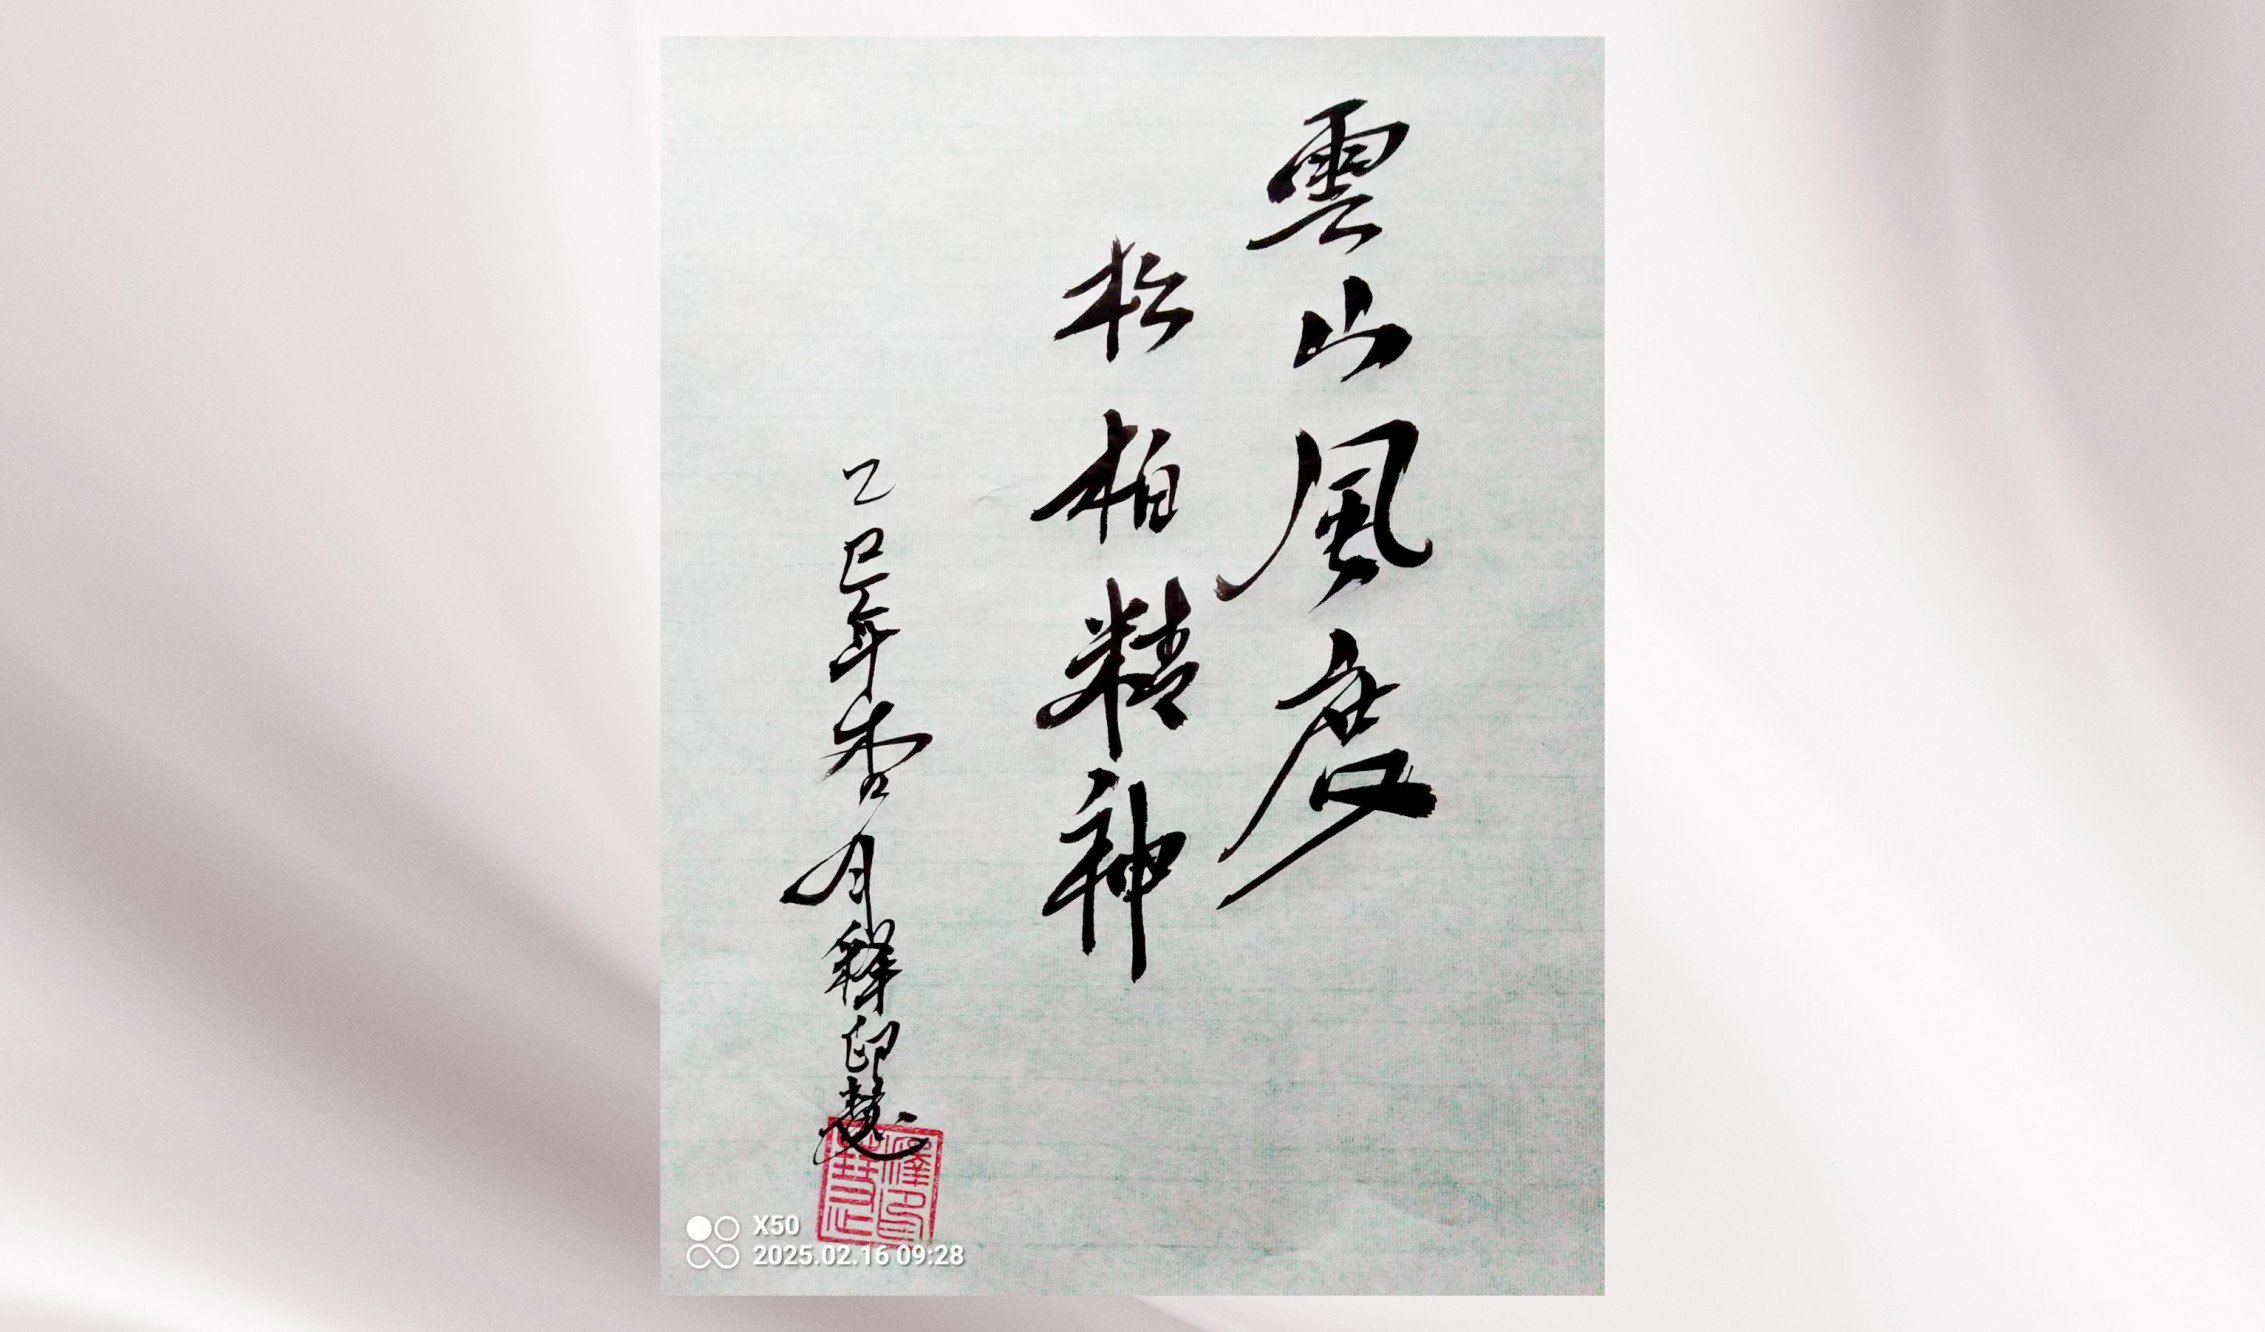 雲山風度
松柏精神
乙巳年杏月釋印慧
X50
2025.02.16 09:28